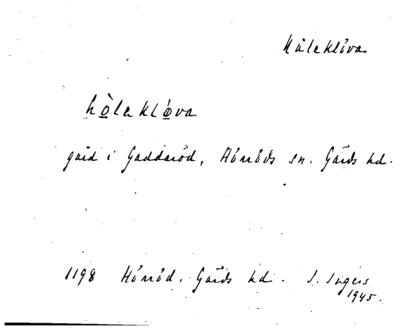 Håleklöva
hòlaklǿva
gård i Gaddaröd, Hörröds sn. Gärds hd.
1198 Hörröd. Gärds hd. S. Ingers
1945.